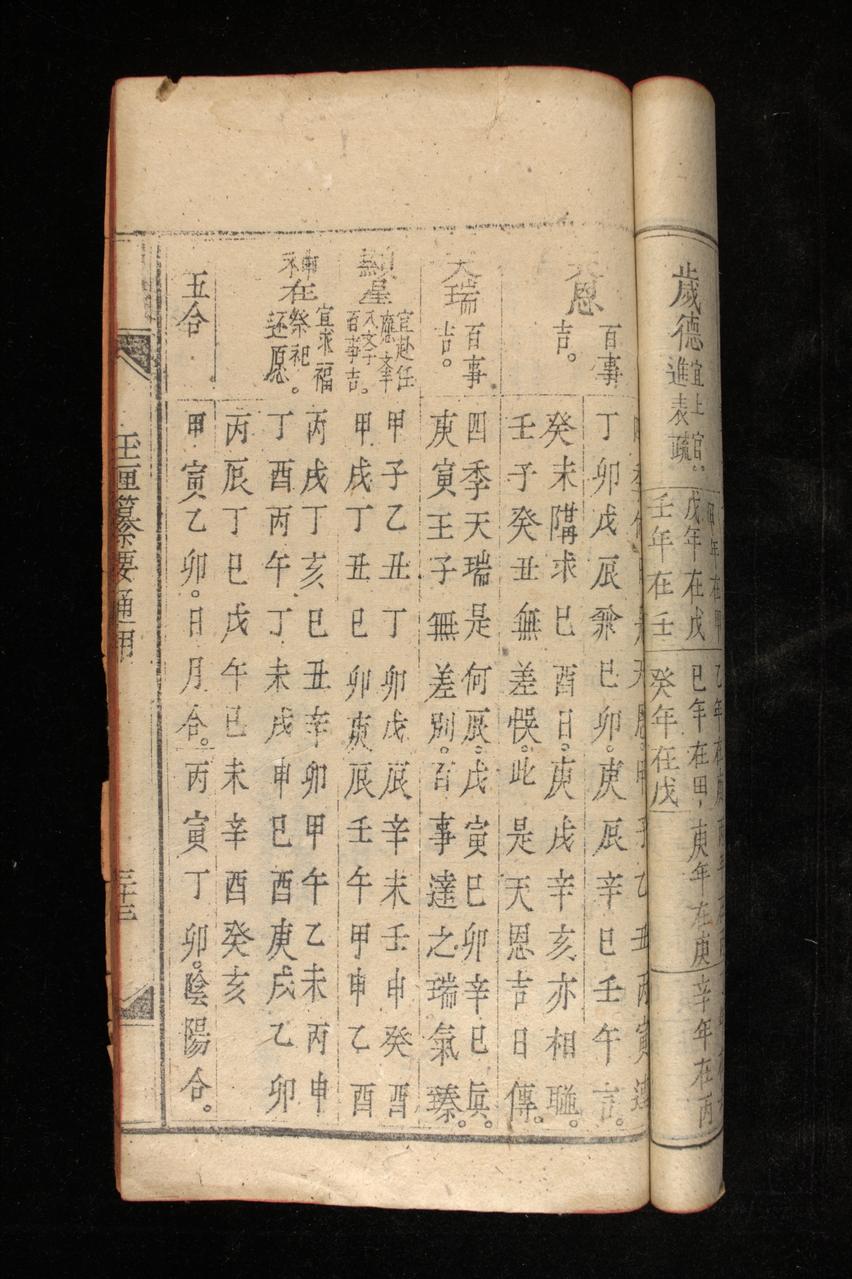 歲德
宜上官。
進表疏
戊年在戊
壬年在壬
己年在甲
癸年在戊
庚年在庚
辛年在丙
天恩
百事
吉。
丁卯戊辰兼巳卯。庚辰辛巳壬午言。
癸未隔求巳酉日。庚戌辛亥亦相聯。
壬子癸丑無差悮。此是天恩吉日傳。
天瑞
百事
吉。
四季天瑞是何辰。戊寅巳卯辛巳眞。
庚寅壬子無差別。百事達之瑞氣臻。
顯星
宜赴任
應文辛
入文子
百事吉。
甲子乙丑丁卯戊辰辛未壬申癸酉
甲戌丁丑巳卯庚辰壬午甲申乙酉
神在
宜求福
祭祀。
还愿
丙戌丁亥巳丑辛卯甲午乙未丙申
丁酉丙午丁未戌申巳酉庚戌乙卯
丙辰丁巳戌午巳未辛酉癸亥
五合
甲寅乙卯。日月合。丙寅丁卯。陰陽合。
纂要通用
三十三